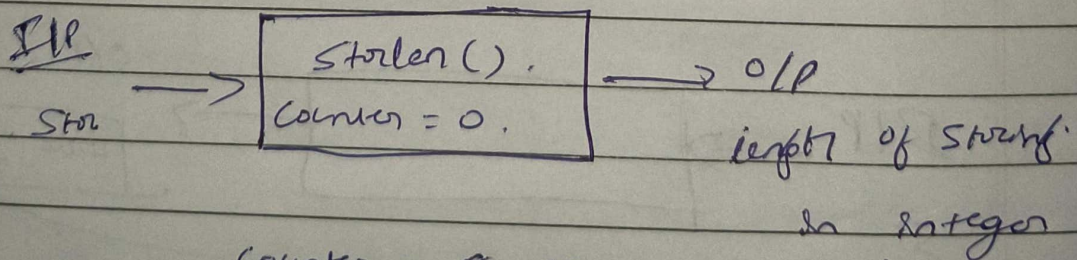 I/P
Str
strlen().
Counter = 0.
O/P
length of string
in integer